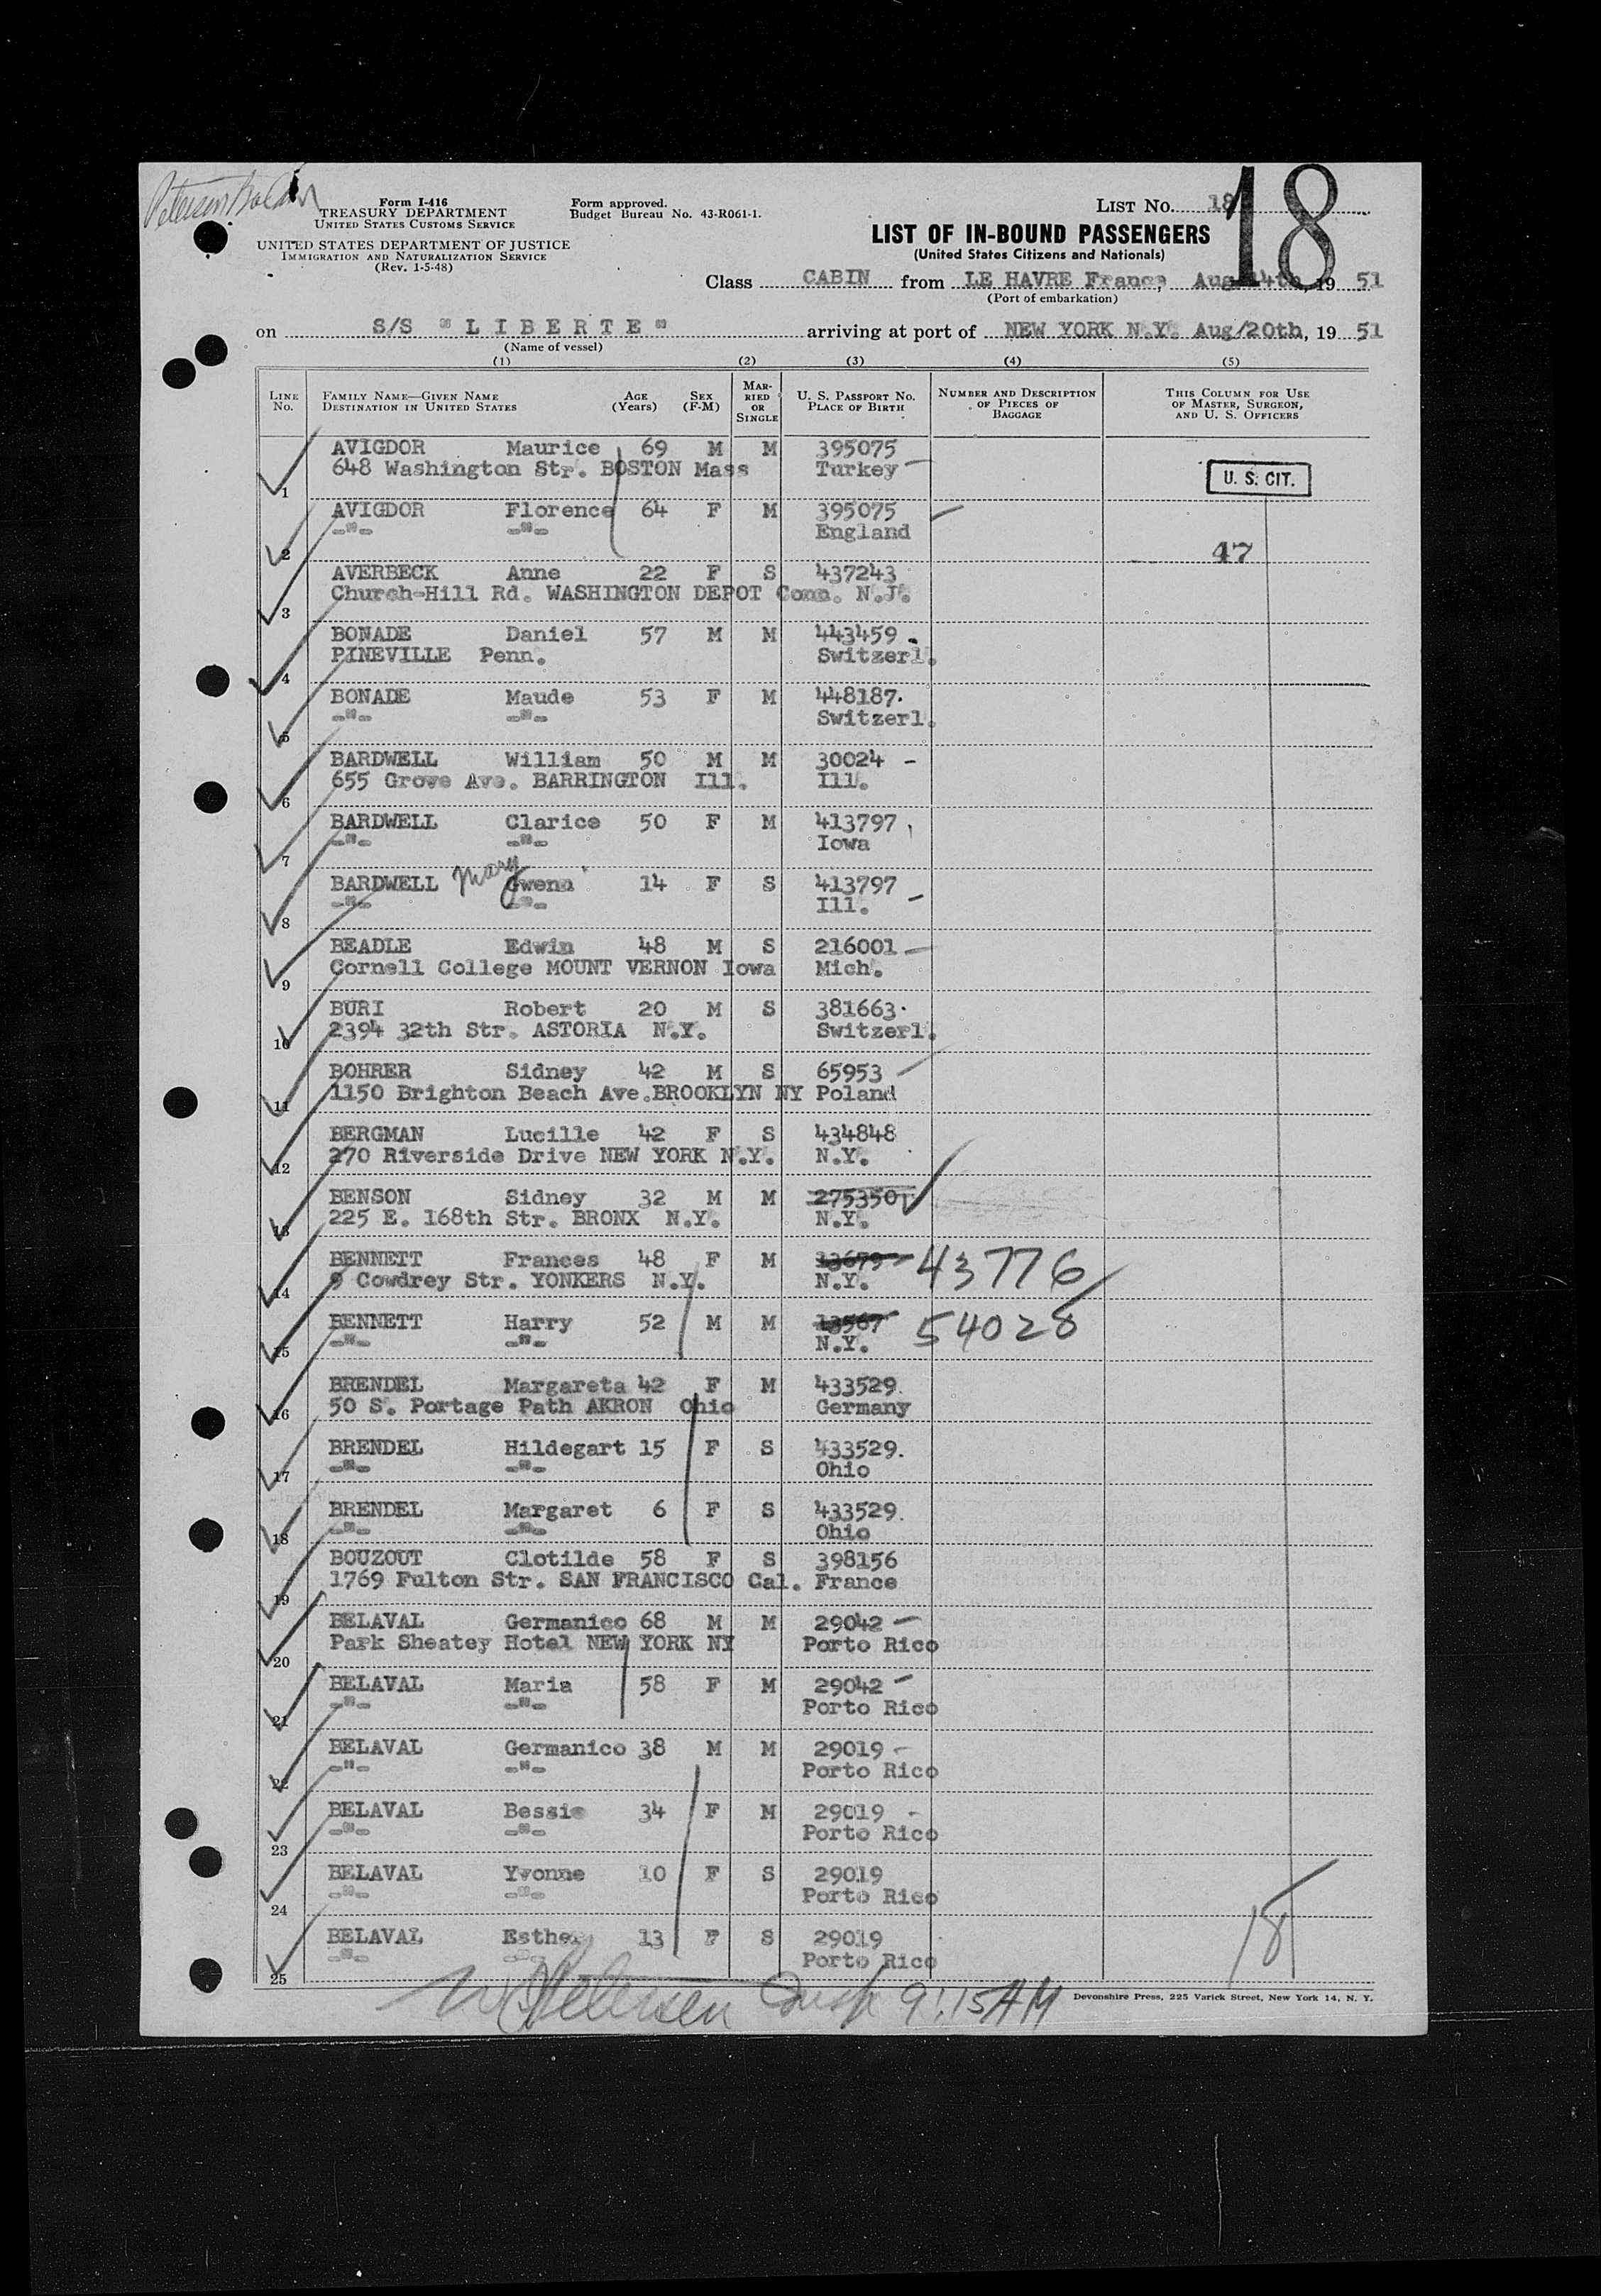 Form I-416
TREASURY DEPARTMENT
UNITED STATES CUSTOMS SERVICE
UNITED STATES DEPARTMENT OF JUSTICE
IMMIGRATION AND NATURALIZATION SERVICE
(Rev. 1-5-48)
Form approved.
Budget Bureau No. 43-R061-1.
LIST NO. 18
18
LIST OF IN-BOUND PASSENGERS
(United States Citizens and Nationals)
Class CABIN from LE HAVRE France, Aug 14th, 19 51
(Port of embarkation)
on S/S "LIBERTE" arriving at port of NEW YORK N.Y. Aug/20th, 19 51
(Name of vessel)
(1) (2) (3) (4) (5)
LINE No. FAMILY NAME—GIVEN NAME DESTINATION IN UNITED STATES AGE (Years) SEX (F-M) MARRIED OR SINGLE U. S. PASSPORT NO. PLACE OF BIRTH NUMBER AND DESCRIPTION OF PIECES OF BAGGAGE THIS COLUMN FOR USE OF MASTER, SURGEON, AND U. S. OFFICERS
AVIGDOR Maurice 69 M M 395075
1 648 Washington Str. BOSTON Mass Turkey
U. S. CIT.
AVIGDOR Florence 64 F M 395075
2 -"- -"- England
47
AVERBECK Anne 22 F S 437243
3 Church-Hill Rd. WASHINGTON DEPOT Conn. N.J.
BONADE Daniel 57 M M 443459
4 PINEVILLE Penn. Switzerl.
BONADE Maude 53 F M 448187.
5 -"- -"- Switzerl.
BARDWELL William 50 M M 30024 -
6 655 Grove Ave. BARRINGTON Ill. Ill.
BARDWELL Clarice 50 F M 413797
7 -"- -"- Iowa
BARDWELL Mary Gwenn 14 F S 413797
8 -"- -"- Ill. -
BEADLE Edwin 48 M S 216001
9 Cornell College MOUNT VERNON Iowa Mich.
BURI Robert 20 M S 381663.
10 2394 32th Str. ASTORIA N.Y. Switzerl.
BOHRER Sidney 42 M S 65953
11 1150 Brighton Beach Ave.BROOKLYN NY Poland
BERGMAN Lucille 42 F S 434848
12 270 Riverside Drive NEW YORK N.Y. N.Y.
BENSON Sidney 32 M M 275350
13 225 E. 168th Str. BRONX N.Y. N.Y.
BENNETT Frances 48 F M 13679 43776
14 9 Cowdrey Str. YONKERS N.Y. N.Y.
BENNETT Harry 52 M M 13567 54028
15 -"- -"- N.Y.
BRENDEL Margareta 42 F M 433529.
16 50 S. Portage Path AKRON Ohio Germany
BRENDEL Hildegart 15 F S 433529.
17 -"- -"- Ohio
BRENDEL Margaret 6 F S 433529.
18 -"- -"- Ohio
BOUZOUT Clotilde 58 F S 398156
19 1769 Fulton Str. SAN FRANCISCO Cal. France
BELAVAL Germanico 68 M M 29042 -
20 Park Sheatey Hotel NEW YORK NY Porto Rico
BELAVAL Maria 58 F M 29042 -
21 -"- -"- Porto Rico
BELAVAL Germanico 38 M M 29019 -
22 -"- -"- Porto Rico
BELAVAL Bessie 34 F M 29019 -
23 -"- -"- Porto Rico
BELAVAL Yvonne 10 F S 29019
24 -"- -"- Porto Rico
BELAVAL Esther 13 F S 29019
25 -"- -"- Porto Rico
18
Petersen Insp 9:15 AM
Devonshire Press, 225 Varick Street, New York 14, N. Y.